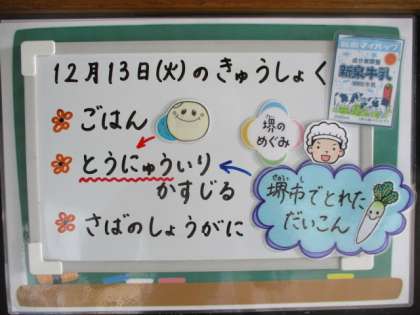 12月13日(火)のきゅうしょく
ごはん
とうにゅういり
かすじる
さばのしょうがに
堺の
めぐみ
新泉牛乳
さかいし
堺市でとれた
だいこん